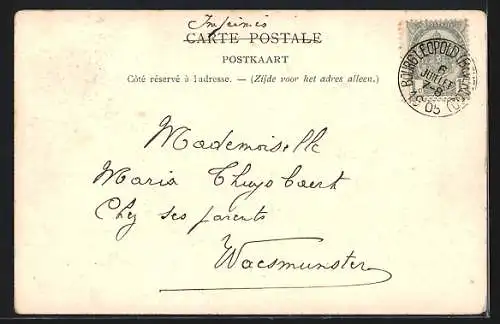 Imprimés
CARTE POSTALE
POSTKAART
Côté réservé à l'adresse. — (Zijde voor het adres alleen.)
BOURG-LÉOPOLD (CAMP)
6
JUIL
7-8
1905
Mademoiselle
Maria Thuysbaert
Chez ses parents
Waesmunster